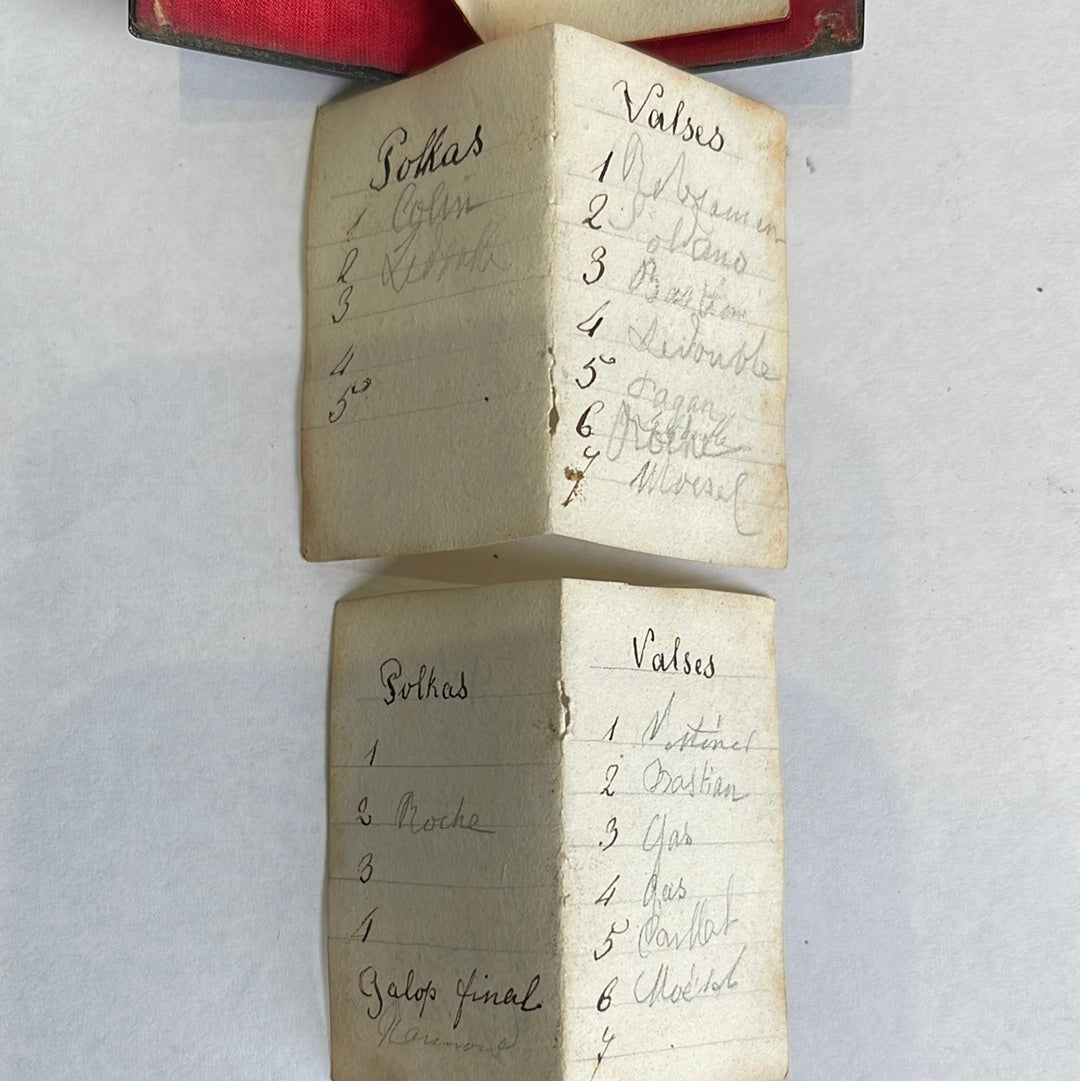 Polkas
1 Colin
2
3
4
5
Valses
1
2 Solano
3 Bastian
4 Ledouble
5 Pagan
6 Roche
7 Moesel
Polkas
1
2 Roche
3
4
Galop final
Valses
1
2 Bastian
3 Gas
4 Gas
5
6 Moésel
7